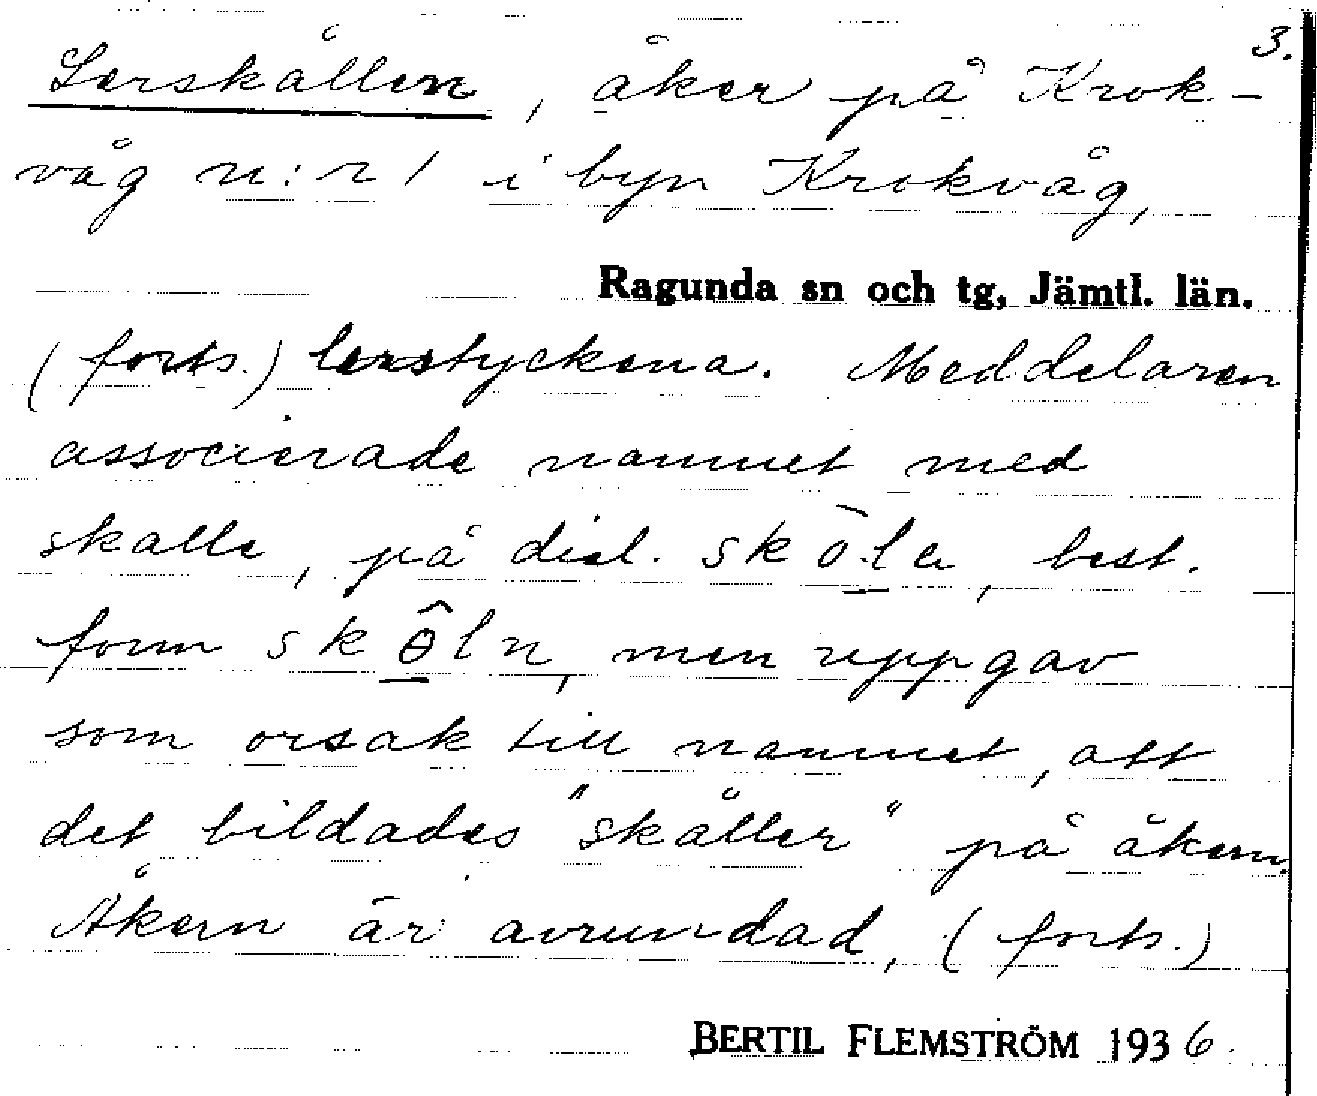 3.
Lerskållen, åker på Krok-
våg n:r 1 i byn Krokvåg,
Ragunda sn och tg, Jämtl. län.
(forts.) lerstyckena. Meddelaren
associerade namnet med
skalle, på dial. sko̠̅la, best.
form skɵ̠̂ln, men uppgav
som orsak till namnet, att
det bildades "skåller" på åkern.
Åkern är avrundad, (forts.)
BERTIL FLEMSTRÖM 1936